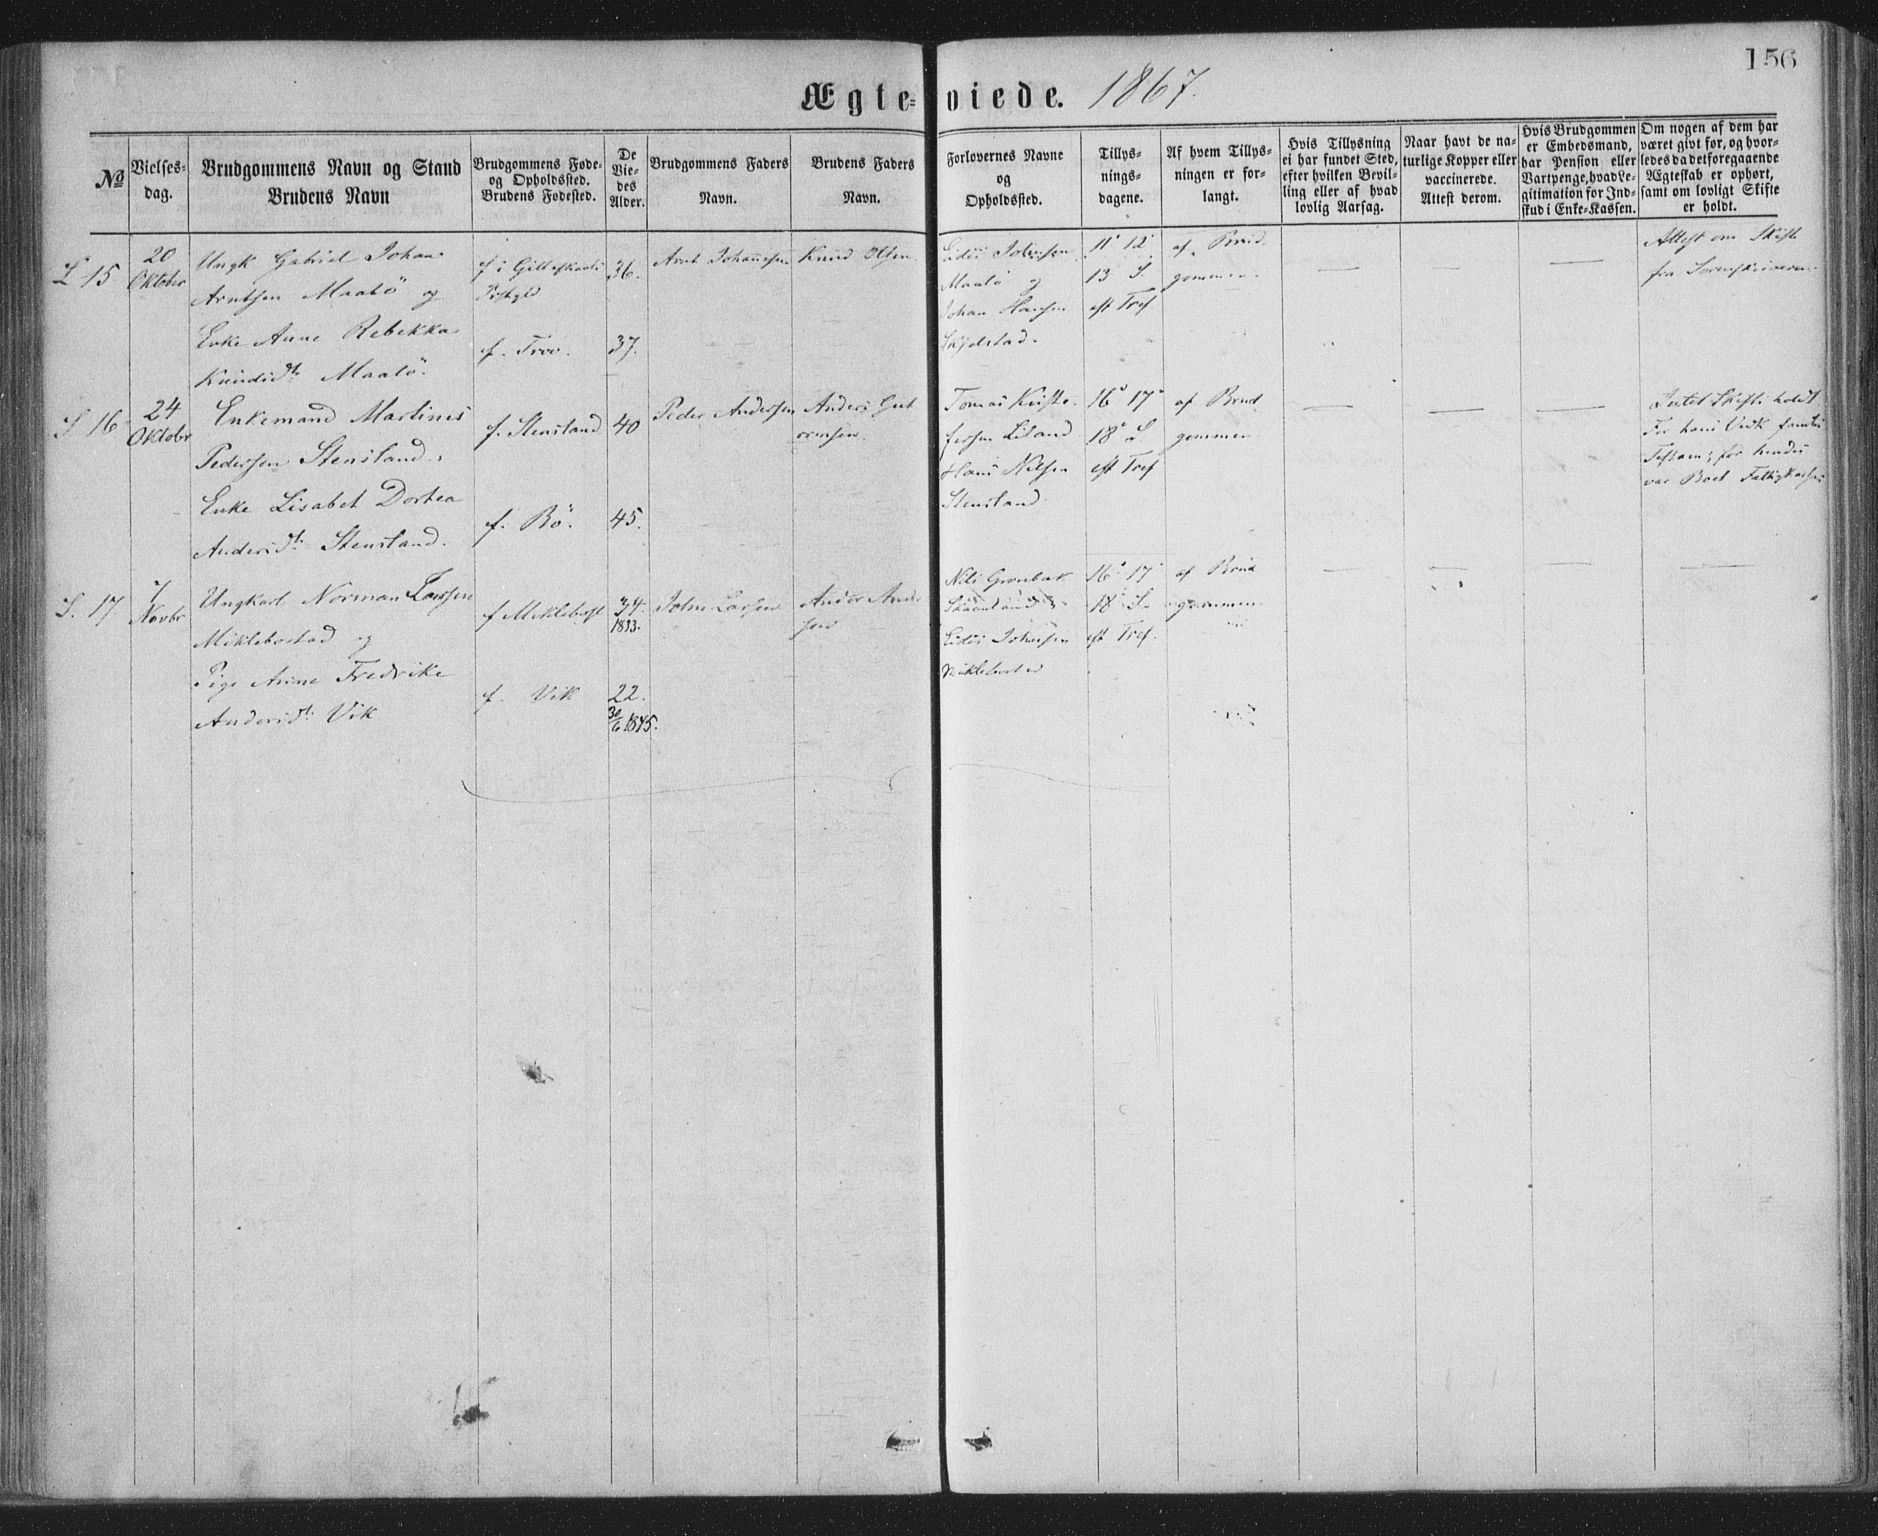 156
Ægteviede. 1867.
No
Vielses-
dag.
Brudgommens Navn og Stand
Brudens Navn
Brudgommens Føde-
og Opholdssted.
Brudens Fødested.
De
Vie-
des
Alder.
Brudgommens Faders
Navn.
Brudens Faders
Navn.
Forlovernes Navne
og
Opholdssted.
Tillys-
nings-
dagene.
Af hvem Tillys-
ningen er for-
langt.
Hvis Tillysning
ei har fundet Sted,
efter hvilken Bevil-
ling eller af hvad
lovlig Aarsag.
Naar havt de na-
turlige Kopper eller
vaccinerede.
Attest derom.
Hvis Brudgommen
er Embedsmand,
har Pension eller
Vartpenge, hvad Le-
gitimation for Ind-
skud i Enke-Kassen.
Om nogen af dem har
været givt før, og hvor-
ledes da det foregaaende
Ægteskab er ophørt,
samt om lovligt Skifte
er holdt.
15
20
Oktober
Ungk Gabriel Johan
Arntsen Maalö og
Enke Anne Rebekka
Knudsdtr Maalö.
f. i Gilleskaals
f. Troo.
36.
37.
Arnt Johannesen
Knud Olsen
Maalö og
Johan Hansen
Skjelstad.
11' 12'
13 S.
eft Tref
af Brud
gommen
Attest om Skifte
fra Sorenskriveren
S 16
24
Oktobr
Enkemand Martines
Pedersen Stensland.
Enke Lisabet Dortea
Andersdtr Stensland.
f. Stensland
f. Bö.
40
45.
Peder Andersen
Anders Gut
ormsen.
Tomas Kriste
fersen Leland
Hans Nilsen
Stensland.
16' 17'
18' S.
eft Tref
af Brud
gommen.
Intet Skifte holdt
var Boet Fattigkassens
S. 17
7
Novbr
Ungkarl Norman Larsen
Miklebostad og
Pige Anne Fredrike
Andersdtr Vik
f Miklebost
f. Vik
34.
1833.
22.
30/6 1845.
John Larsen
Anders Ander
sen
Nils Grönbæk
Miklebostad
16' 17'
18' S.
eft Tref.
af Brud
gommen